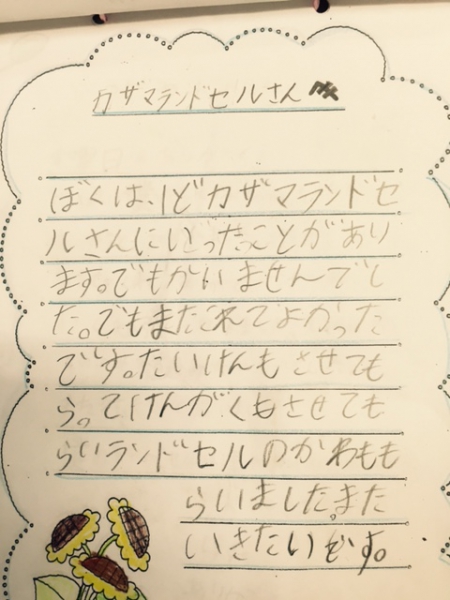 カザマランドセルさん
ぼくは、1どカザマランドセ
ルさんにいったことがあり
ます。でもかいませんでし
た。でもまたこれてよかった
です。たいけんもさせても
らってけんがくもさせても
らいランドセルのかわもも
らいました。また
いきたいです。